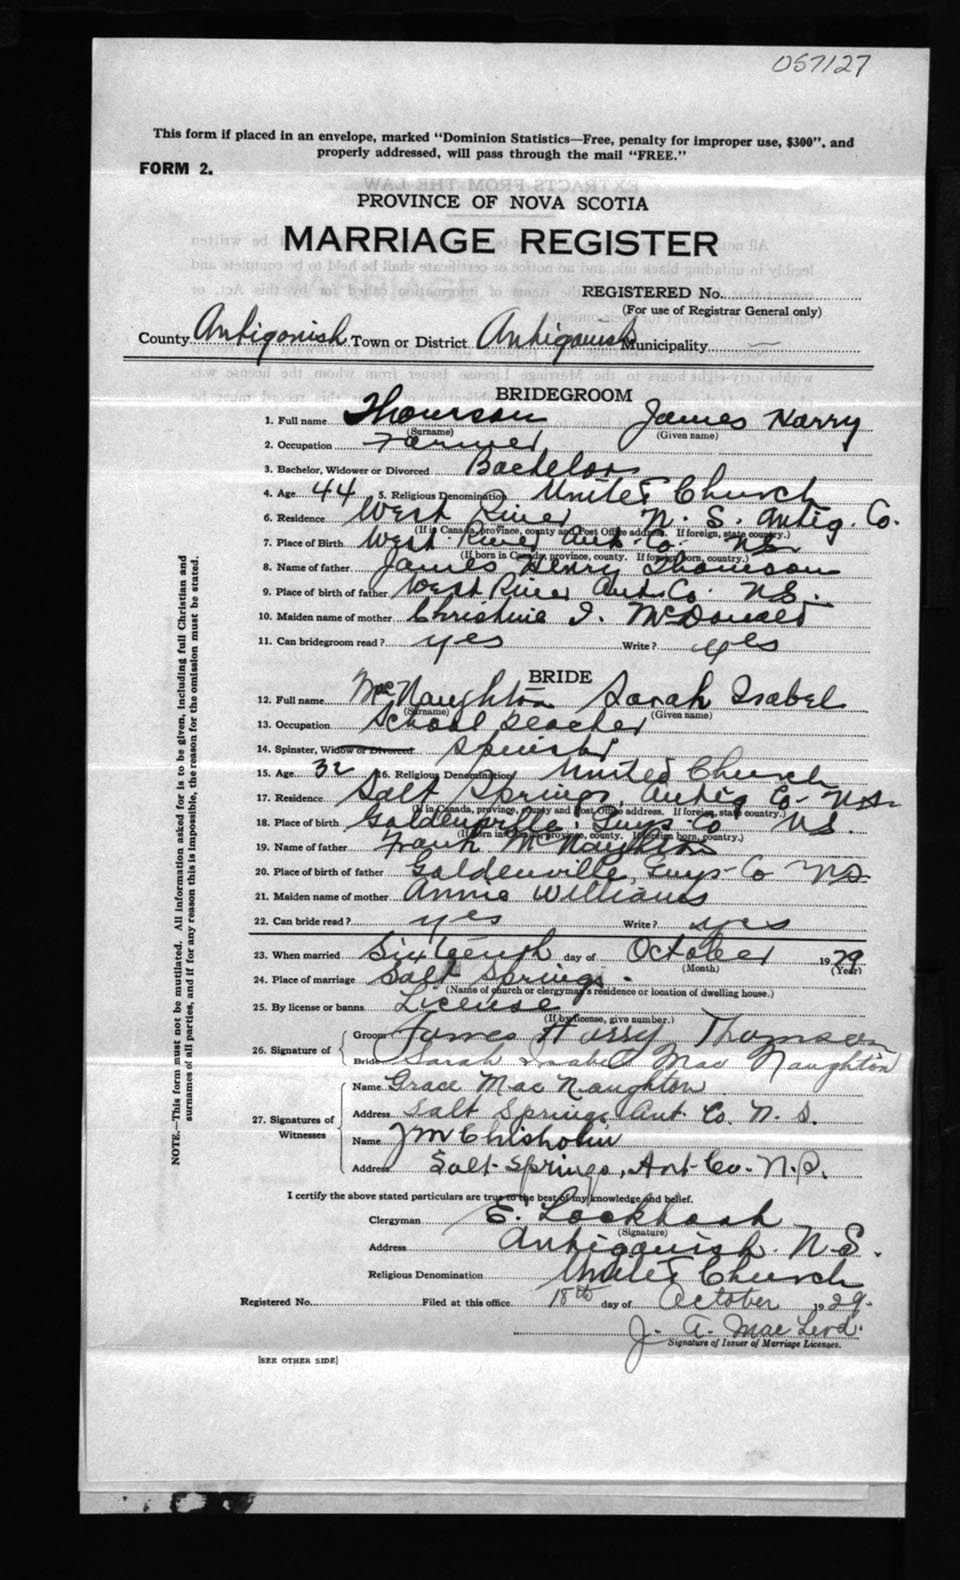 057127
This form if placed in an envelope, marked "Dominion Statistics—Free, penalty for improper use, $300", and
properly addressed, will pass through the mail "FREE."
FORM 2.
PROVINCE OF NOVA SCOTIA
MARRIAGE REGISTER
REGISTERED No.
(For use of Registrar General only)
County Antigonish Town or District Antigonish Municipality —
BRIDEGROOM
1. Full name Thomson James Harry
(Surname) (Given name)
2. Occupation Farmer
3. Bachelor, Widower or Divorced Bachelor
4. Age 44 5. Religious Denomination United Church
6. Residence West River N. S. Antig. Co.
(If in Canada, province, county and Post Office address. If foreign, state country.)
7. Place of Birth West River Ant. Co. N.S.
(If born in Canada, province, county. If foreign born, country.)
8. Name of father James Henry Thomson
9. Place of birth of father West River Ant. Co. N.S.
10. Maiden name of mother Christine I. McDonald
11. Can bridegroom read? yes Write? yes
BRIDE
12. Full name MacNaughton Sarah Isabel
(Surname) (Given name)
13. Occupation School Teacher
14. Spinster, Widow or Divorced Spinster
15. Age 32 16. Religious Denomination United Church
17. Residence Salt Springs, Antig Co- N.S.
(If in Canada, province, county and Post Office address. If foreign, state country.)
18. Place of birth Goldenville, Guys- Co N.S.
(If born in Canada, province, county. If foreign born, country.)
19. Name of father Frank McNaughton
20. Place of birth of father Goldenville, Guys- Co N.S.
21. Maiden name of mother Annie Williams
22. Can bride read? yes Write? yes
23. When married Sixteenth day of October 1929
(Month) (Year)
24. Place of marriage Salt Springs.
(Name of church or clergyman's residence or location of dwelling house.)
25. By license or banns License
(If by license, give number.)
26. Signature of Groom James Harry Thomson
Bride Sarah Isabel MacNaughton
27. Signatures of Witnesses
Name Grace MacNaughton
Address Salt Springs Ant. Co. N. S.
Name J M Chisholm
Address Salt-Springs, Ant-Co.-N.S.
I certify the above stated particulars are true to the best of my knowledge and belief.
Clergyman E. Lockhart
(Signature)
Address Antigonish. N.S.
Religious Denomination United Church
Registered No. Filed at this office 18th day of October 1929.
J. A. MacLeod.
Signature of Issuer of Marriage Licenses.
[SEE OTHER SIDE]
NOTE.—This form must not be mutilated. All information asked for is to be given, including full Christian and
surnames of all parties, and if for any reason this is impossible, the reason for the omission must be stated.